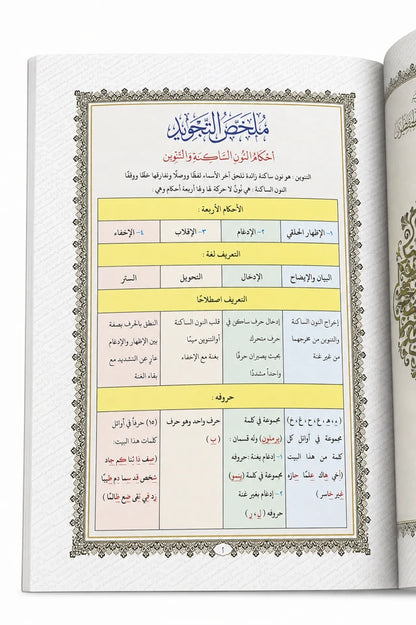 ملخص التجويد
أحكام النون الساكنة والتنوين
التنوين : هو نون ساكنة زائدة تلحق آخر الأسماء لفظًا ووصلًا وتفارقها خطًا ووقفًا
النون الساكنة : هي نونٌ لا حركة لها ولها أربعة أحكام وهي :
الأحكام الأربعة :
١- الإظهار الحلقي
٢- الإدغام
٣- الإقلاب
٤- الإخفاء
التعريف لغة :
البيان والإيضاح
الإدخال
التحويل
الستر
التعريف اصطلاحًا
إخراج النون الساكنة
والتنوين من مخرجهما
من غير غنة
إدخال حرف ساكن في
حرف متحرك
بحيث يصيران حرفًا
واحداً مشددًا
قلب النون الساكنة
أوالتنوين ميمًا
بغنة مع الإخفاء
النطق بالحرف بصفة
بين الإظهار والإدغام
عارٍ عن التشديد مع
بقاء الغنة
حروفه :
( ء، هـ، ع، ح، غ، خ )
مجموعة في أوائل كل
كلمة من هذا البيت
( أخي هاك علمًا حازه
غير خاسر )
مجموعة في كلمة
(يرملون) وله قسمان :
١- إدغام بغنة : حروفه
مجموعة في كلمة (ينمو)
٢- إدغام بغير غنة
حروفه ( ل، ر )
حرف واحد وهو حرف
( ب )
(١٥) حرفاً في أوائل
كلمات هذا البيت:
(صف ذا ثنا كم جاد
شخص قد سما دم طيبًا
زد في تقى ضع ظالمًا )